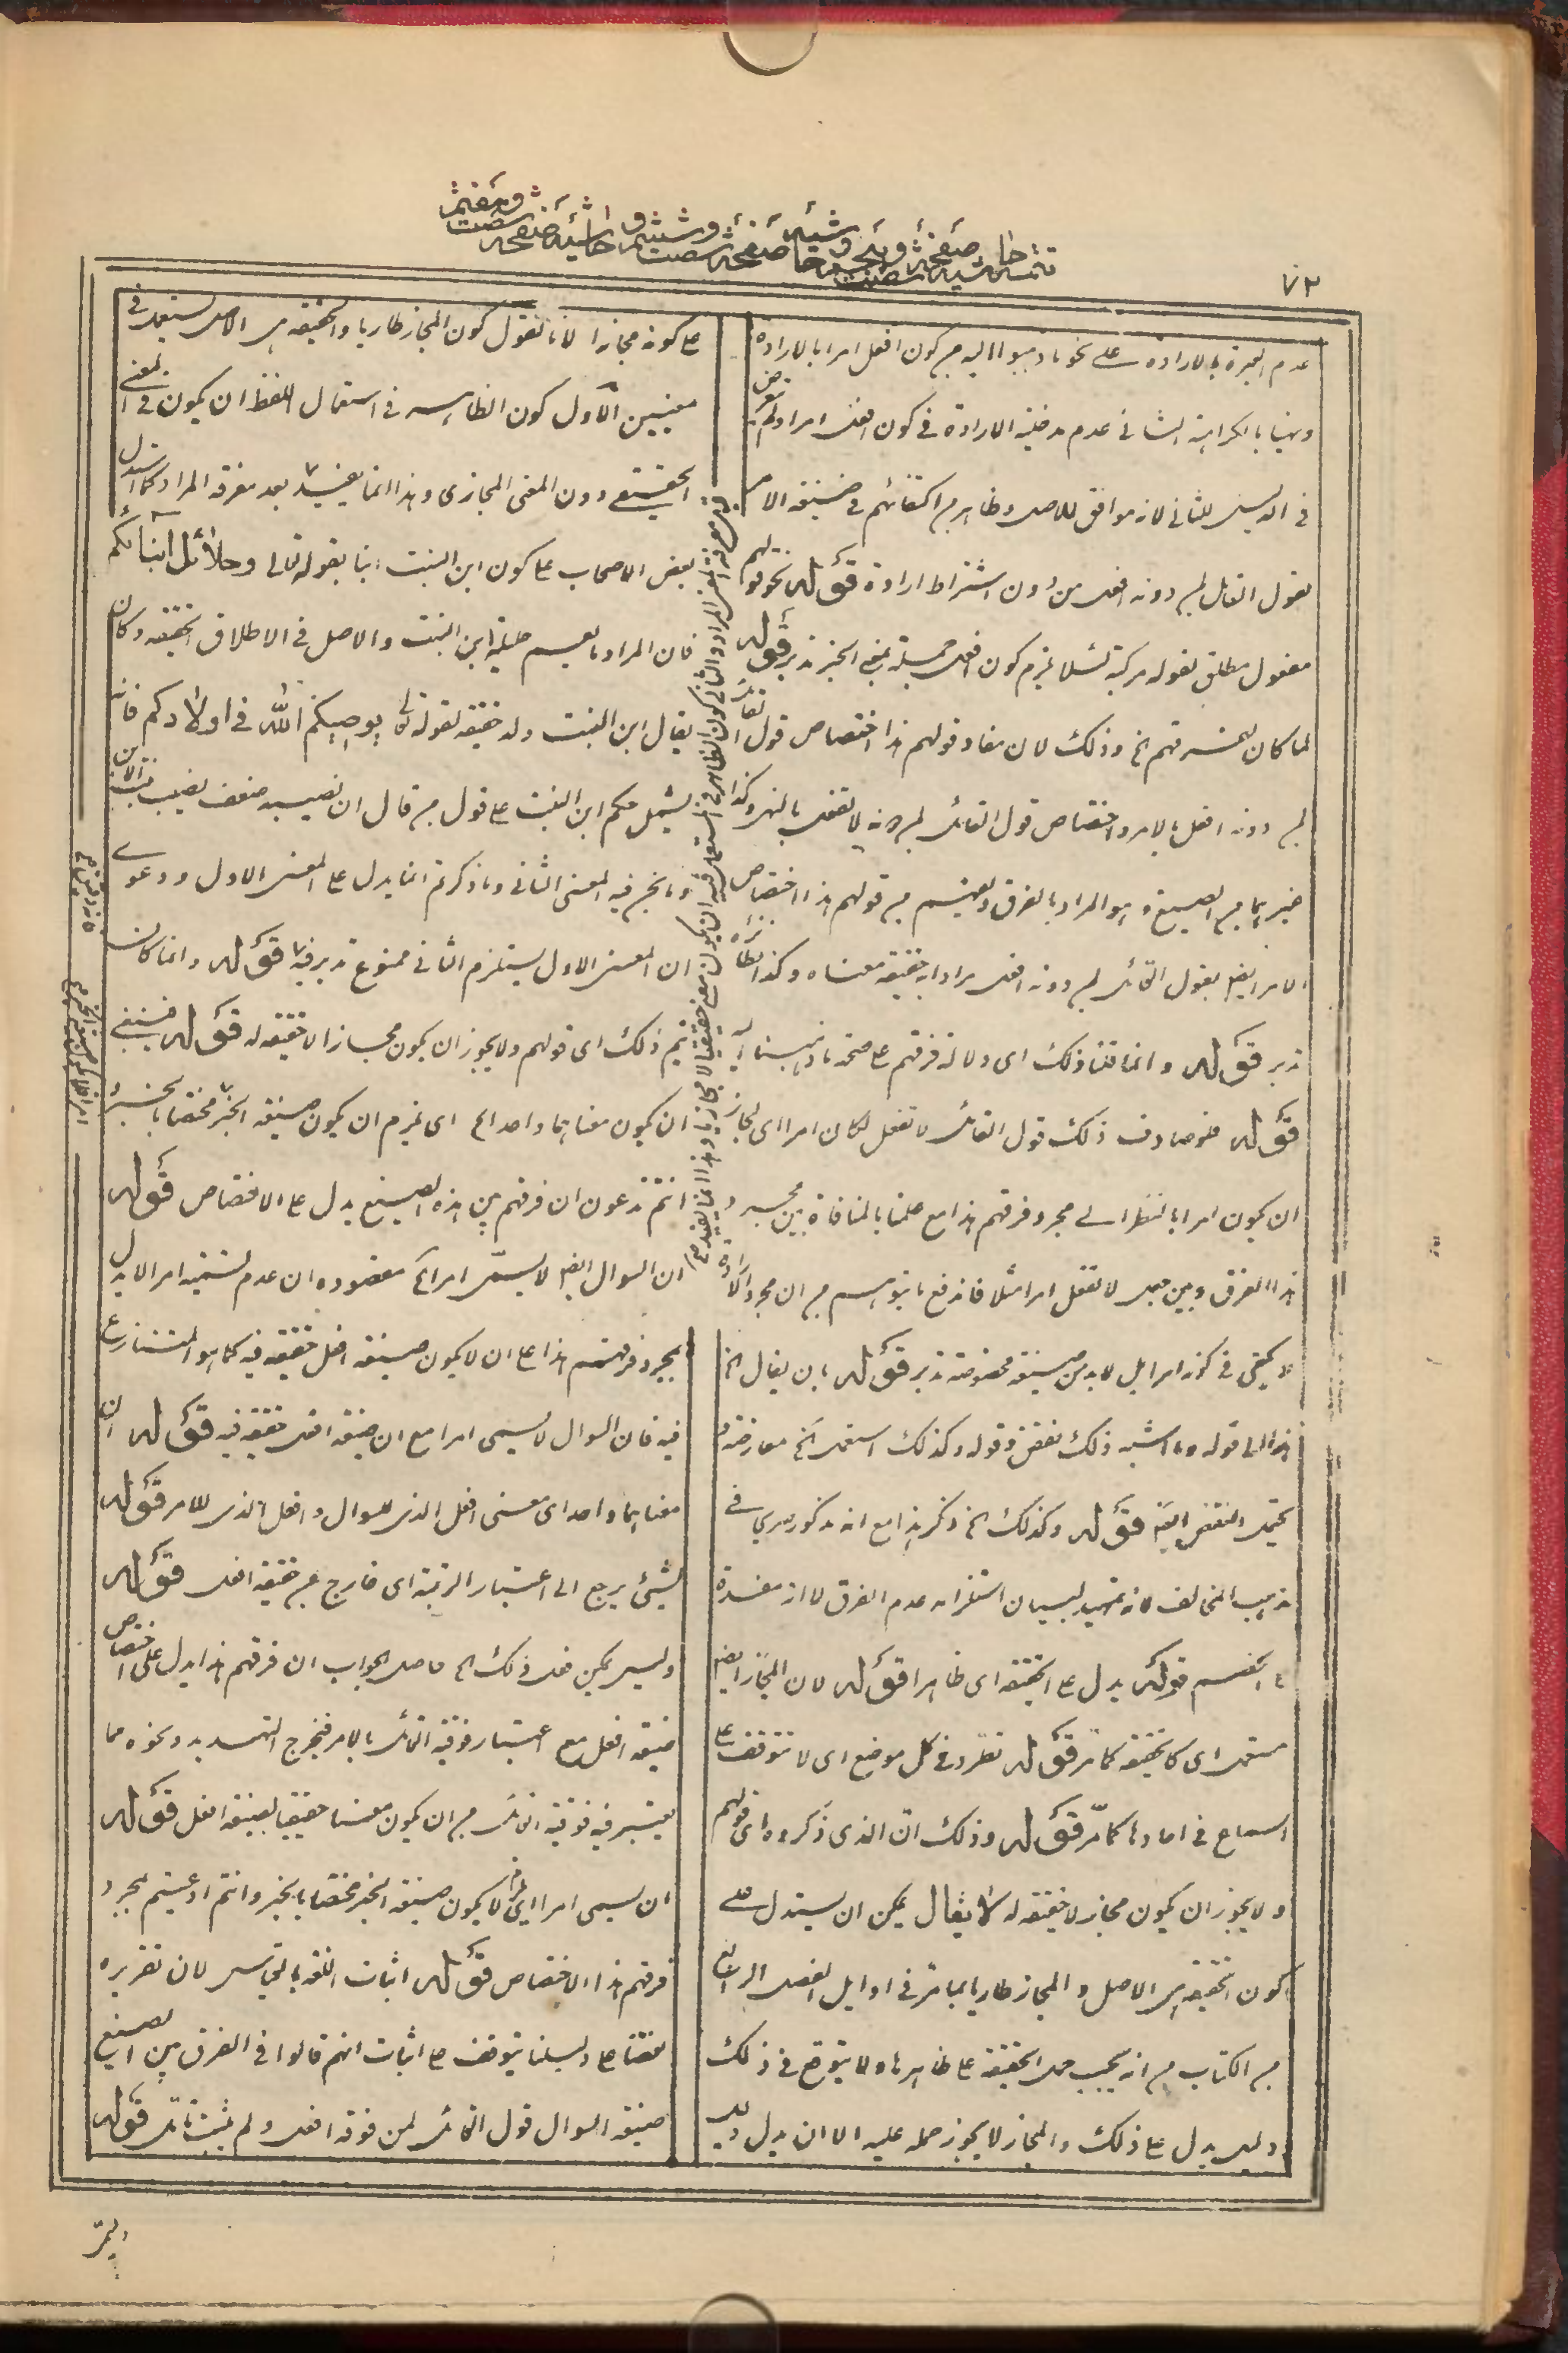 ٧٢
تتمه حاشيه صفحه شصت و پنجم و حاشيه صفحه شصت و ششم و حاشيه صفحه شصت و هفتم
عدم العبرة بالارادة على نحو ما ذهبوا اليه من كون افعل امرا بالارادة
ونهيا بالكراهة الثانى عدم مدخلية الارادة فى كون افعل امرا ولم يتعرض
فى الدليل للثانى لانه موافق للاصل وظاهر من اكتفائهم فى صيغة الامر
بقول القائل لمن دونه افعل من دون اشتراط ارادة قوله نحو قولهم
مفعول مطلق لقوله مركبة لئلا يلزم كون افعل جملة بمعنى الخبر تدبر قوله
لما كان لفرقهم الخ وذلك لان مفاد قولهم هذا اختصاص قول القائل
لمن دونه افعل بالامر واختصاص قول القائل لمن دونه لا تفعل بالنهى وكذا
غيرهما من الصيغ وهو المراد بالفرق والقسم من قولهم هذا اختصاص
الامر ايض بقول القائل لمن دونه افعل مرادا به حقيقة معناه وكذا نظائره
تدبر قوله وانما قلنا ذلك اى دلالة فرقهم على صحة ما ذهبنا اليه
قوله فلو صادف ذلك قول القائل لا تفعل لكان امرا اى لجاز
ان يكون امرا بالنظر الى مجرد فرقهم هذا مع علمنا بالمنافاة بين مجرد
هذا الفرق وبين جعل لا تفعل امرا مثلا فاندفع ما يتوهم من ان مجرد الارادة
لا يكفى فى كونه امرا بل لا بد من صيغة مخصوصة تدبر قوله بان يقال الخ
هذا الى قوله وما اشبه ذلك نقض وقوله وكذلك استعمل الخ معارضة و
يحتمل النقض ايضا قوله وكذلك الخ ذكر هذا مع انه مذكور صريحا فى
مذهب المخالف لانه تمهيد لبيان استلزامه عدم الفرق لا انه مفسدة
بالخصم قوله يدل على الحقيقة اى ظاهرا قوله لان المجاز ايض
مستعمل اى كالحقيقة كما مر قوله تطرد فى كل موضع اى لا تتوقف على
السماع فى احادها كما مر قوله وذلك ان الذى ذكروه اى قولهم
ولا يجوز ان يكون مجاز لا حقيقة له لا يقال يمكن ان يستدل على
كون الحقيقة هى الاصل والمجاز طاريا بما مر فى اوايل الفصل الرابع
من الكتاب من انه يجب حمل الحقيقة على ظاهرها ولا يتوقع فى ذلك
دليل يدل على ذلك والمجاز لا يجوز حمله عليه الا ان يدل دليل
على كونه مجازا لانا نقول كون المجاز طاريا والحقيقة هى الاصل يستعمل فى
معنيين الاول كون الظاهر فى استعمال اللفظ ان يكون فى المعنى
الحقيقى دون المعنى المجازى وهذا انما يفيد بعد معرفة المراد كما استدل
بعض الاصحاب على كون ابن البنت ابنا بقوله تعالى وحلائل ابنائكم
فان المراد ما يعم حليلة ابن البنت والاصل فى الاطلاق الحقيقة وكان
يقال ابن البنت ولد حقيقة لقوله تعالى يوصيكم الله فى اولادكم فانه
يشمل حكم ابن البنت على قول من قال ان نصيبه ضعف نصيب بنت الابن
وما نحن فيه المعنى الثانى وما ذكرتم انما يدل على المعنى الاول ودعوى
ان المعنى الاول يستلزم الثانى ممنوع تدبر فيه قوله وانما كان
يتم ذلك اى قولهم ولا يجوز ان يكون مجازا لا حقيقة له قوله فينبغى
ان يكون معناهما واحدا الخ اى يلزم ان يكون صيغة الخبر مختصا بالخبر
انتم تدعون ان فرقهم بين هذه الصيغ يدل على الاختصاص قوله
ان السوال ايض لا يسمى امرا الخ مقصوده ان عدم تسميته امرا لا يدل
بمجرد فرقهم هذا على ان لا يكون صيغة افعل حقيقة فيه كما هو المتنازع
فيه فان السوال لا يسمى امرا مع ان صيغة افعل حقيقة فيه قوله ان
معناهما واحدا اى معنى افعل الذى للسوال وافعل الذى للامر قوله
لشيئ يرجع الى اعتبار الرتبة اى خارج عن حقيقة افعل قوله
وليس يمكن فى ذلك الخ حاصل الجواب ان فرقهم هذا يدل على اختصاص
صيغة افعل مع اعتبار فوقية القائل بالامر فيخرج التهديد ونحوه مما
يعتبر فيه فوقية القائل من ان يكون معنا حقيقيا لصيغة افعل قوله
ان يسمى امرا اى لا يكون صيغة الخبر مختصا بالخبر وانتم ادعيتم بمجرد
فرقهم هذا الاختصاص قوله اثبات اللغة بالقياس لان تقريره
نقضا على دليلنا يتوقف على اثبات انهم قالوا فى الفرق بين الصيغ
صيغة السوال قول القائل لمن فوقه افعل ولم يثبت تامل قوله
معرفة المعنى المراد والثانى كون الظاهر فى المستعمل فيه ان يكون معنى حقيقيا لا مجازيا وهذا انما يفيد